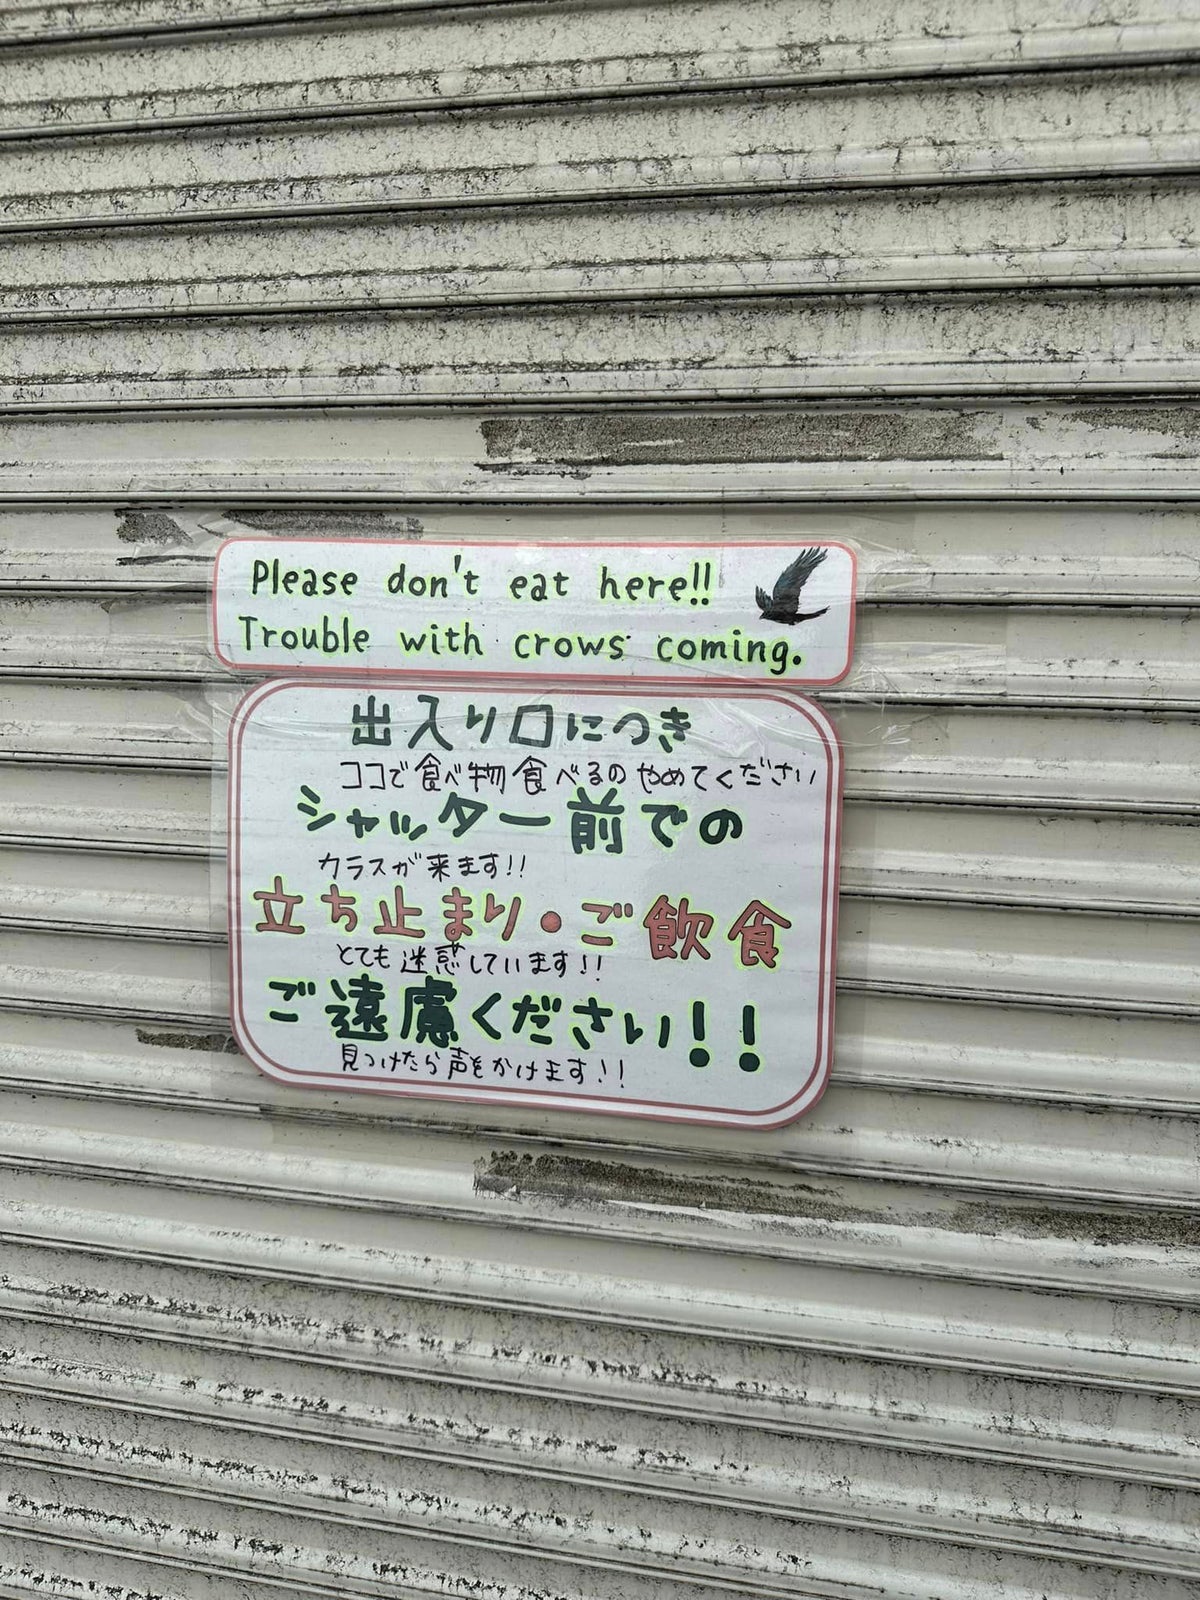 Please don't eat here!!
Trouble with crows coming.
出入り口につき
ココで食べ物食べるのやめてください
シャッター前での
カラスが来ます!!
立ち止まり・ご飲食
とても迷惑しています!!
ご遠慮ください!!
見つけたら声をかけます!!